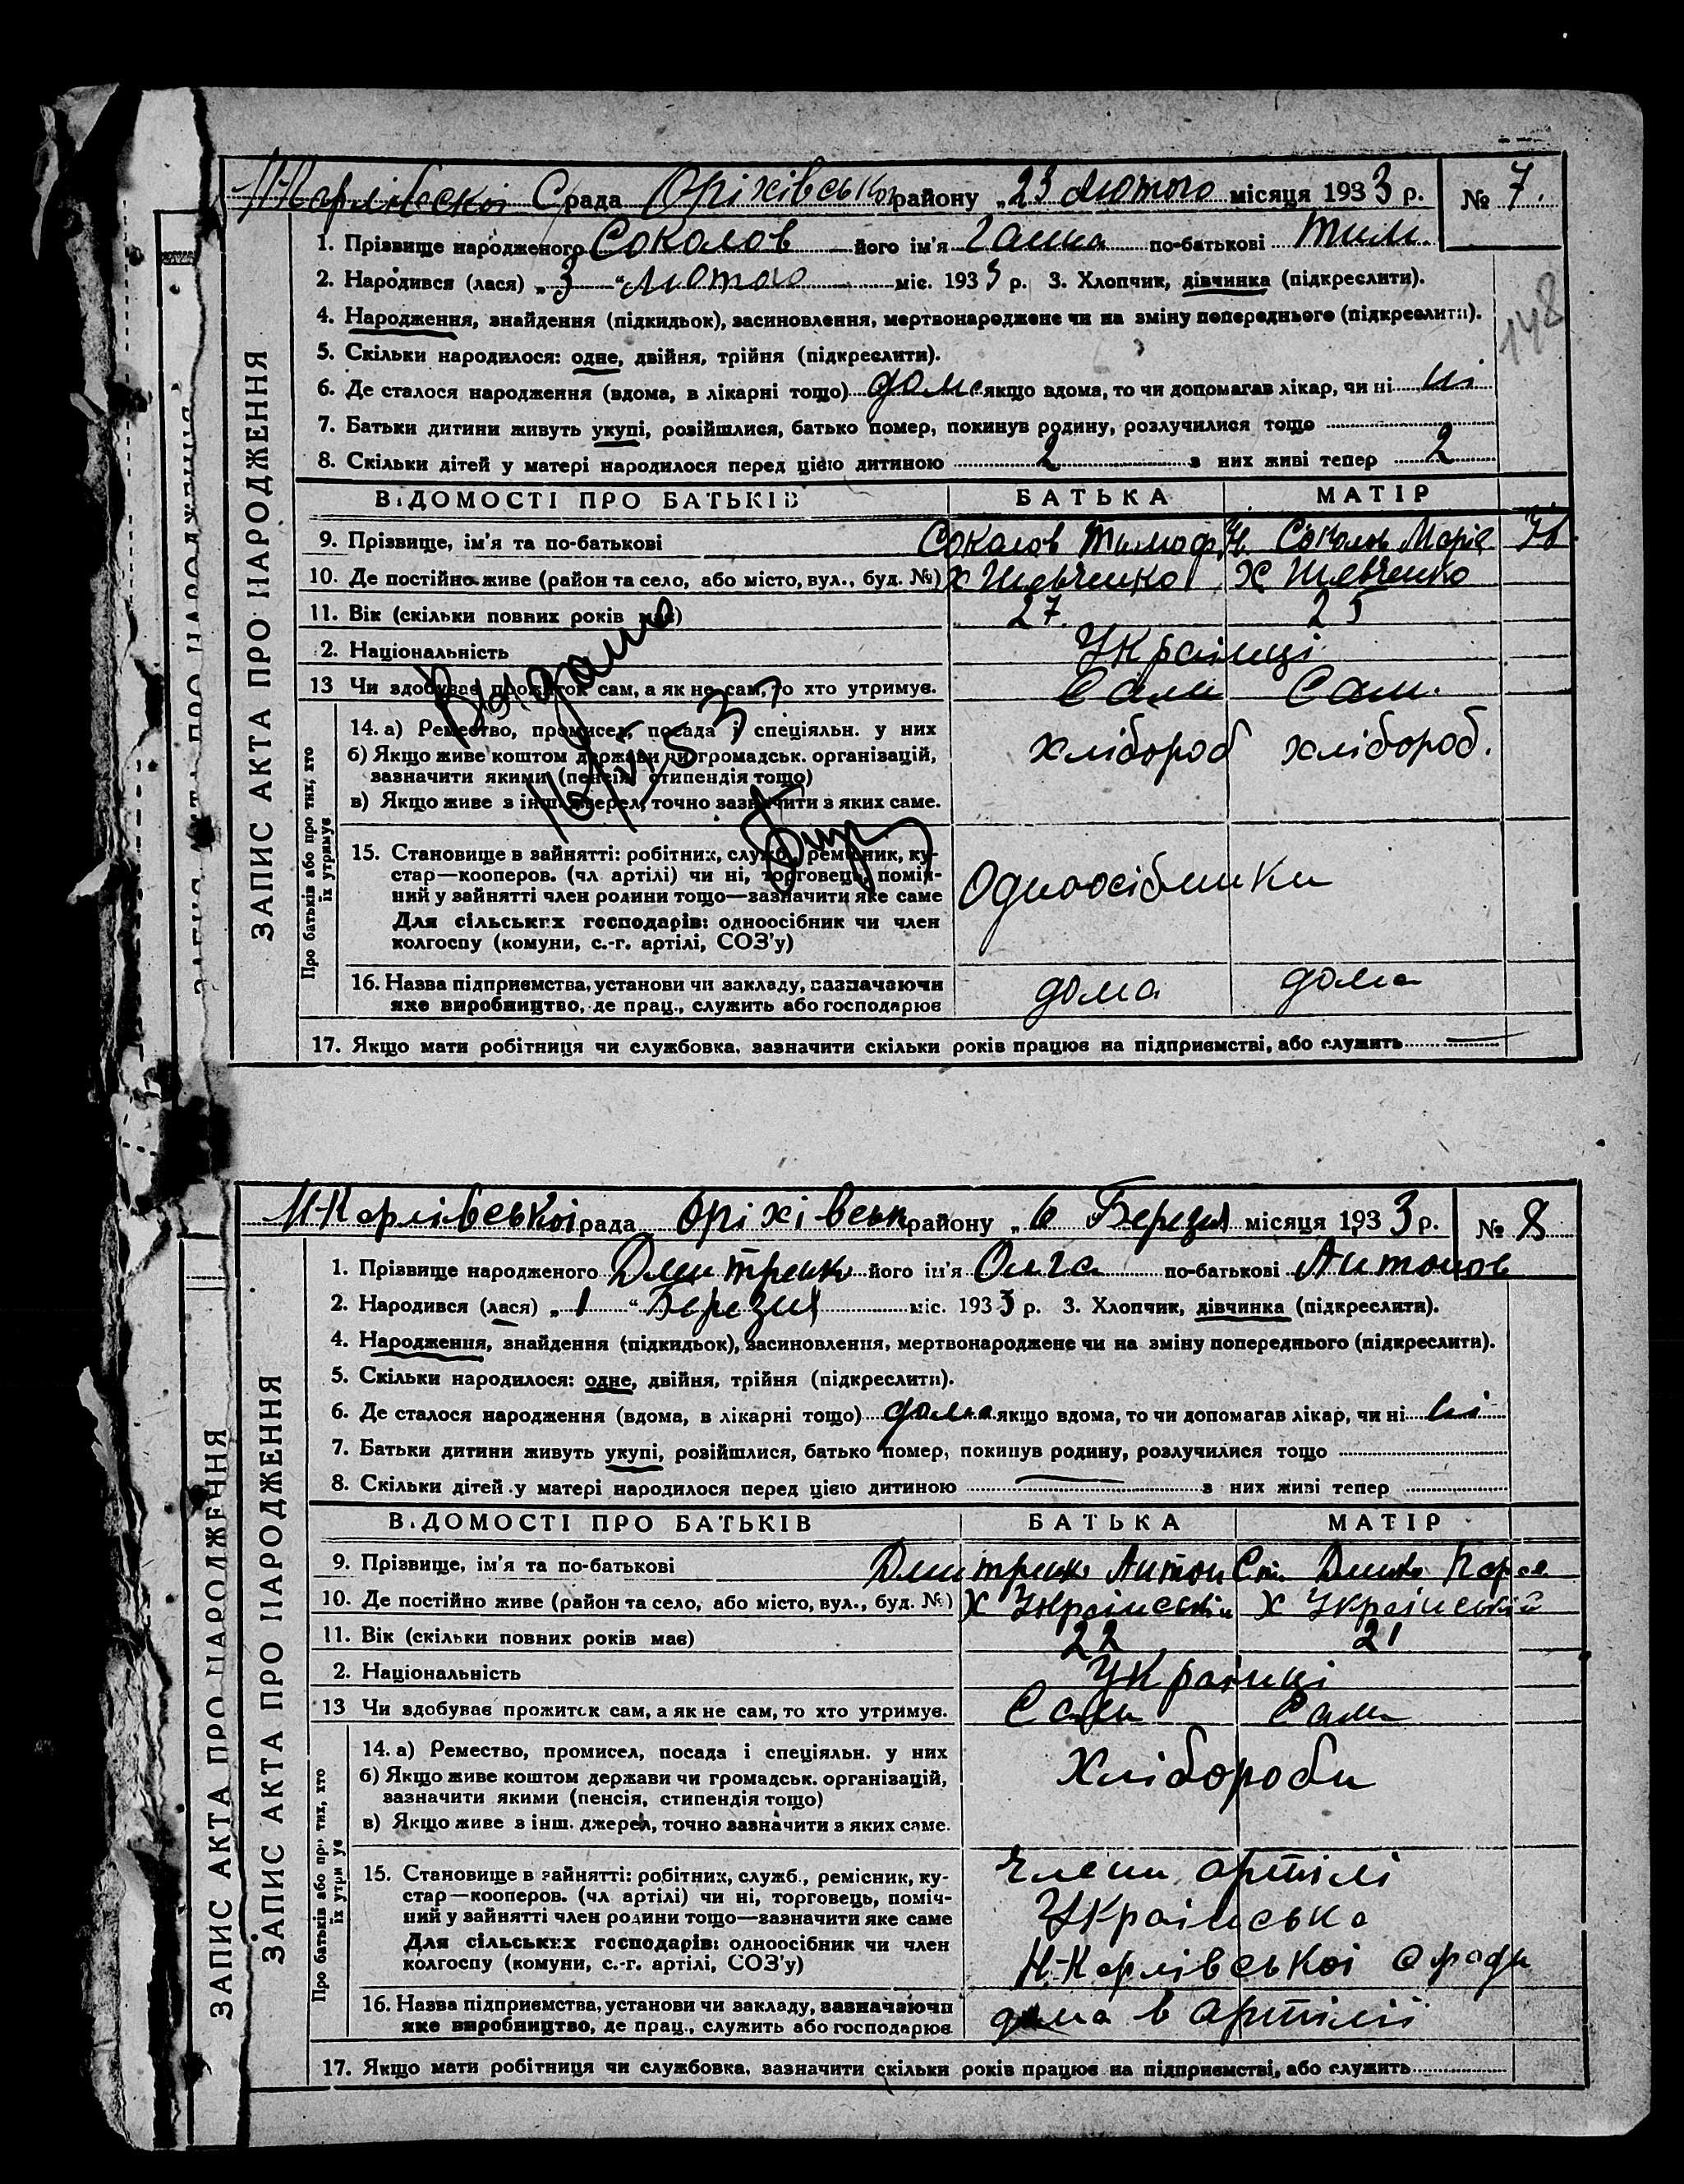 Н-Карлівської С рада Оріхівського району „23 лютого місяця 1933 р. № 7.
148
ЗАПИС АКТА ПРО НАРОДЖЕННЯ
1. Прізвище народженого Соколов його ім'я Ганна по-батькові Тим.
2. Народився (лася) „3“ Лютого міс. 1933 р. 3. Хлопчик, дівчинка (підкреслити).
4. Народження, знайдення (підкидьок), засиновлення, мертвонароджене чи на зміну попереднього (підкреслити).
5. Скільки народилося: одне, двійня, трійня (підкреслити).
6. Де сталося народження (вдома, в лікарні тощо) дома якщо вдома, то чи допомагав лікар, чи ні ні
7. Батьки дитини живуть укупі, розійшлися, батько помер, покинув родину, розлучилися тощо
8. Скільки дітей у матері народилося перед цією дитиною 2 з них живі тепер 2
ВІДОМОСТІ ПРО БАТЬКІВ БАТЬКА МАТІР
9. Прізвище, ім'я та по-батькові Соколов Тимоф. Ів. Соколов Марія Ів.
10. Де постійно живе (район та село, або місто, вул., буд. №) Х Шевченко Х Шевченко
11. Вік (скільки повних років має) 27 25
2. Національність Українці
13 Чи здобуває прожиток сам, а як не сам, то хто утримує. Сам Сам.
Про батьків або про тих, хто їх утримує
14. а) Ремество, промисел, посада і спеціяльн. у них хлібороб хлібороб.
б) Якщо живе коштом держави чи громадськ. організацій,
зазначити якими (пенсія, стипендія тощо)
в) Якщо живе з інш. джерел, точно зазначити з яких саме.
Выдано
15. Становище в зайнятті: робітник, служб., ремісник, ку-
стар—кооперов. (чл. артілі) чи ні, торговець, поміч-
ний у зайнятті член родини тощо—зазначити яке саме
Для сільських господарів: одноосібник чи член
колгоспу (комуни, с.-г. артілі, СОЗ'у)
Одноосібники
16. Назва підприємства, установи чи закладу, зазначаючи
яке виробництво, де прац., служить або господарює
дома дома
17. Якщо мати робітниця чи службовка, зазначити скільки років працює на підприємстві, або служить —
Н-Карлівської рада Оріхівськ району „6 Березня місяця 1933 р. № 8
ЗАПИС АКТА ПРО НАРОДЖЕННЯ
ЗАПИС АКТА ПРО НАРОДЖЕННЯ
1. Прізвище народженого Дмитренко його ім'я Ольга по-батькові Антонов
2. Народився (лася) „1“ Березня міс. 1933 р. 3. Хлопчик, дівчинка (підкреслити).
4. Народження, знайдення (підкидьок), засиновлення, мертвонароджене чи на зміну попереднього (підкреслити).
5. Скільки народилося: одне, двійня, трійня (підкреслити).
6. Де сталося народження (вдома, в лікарні тощо) дома якщо вдома, то чи допомагав лікар, чи ні ні
7. Батьки дитини живуть укупі, розійшлися, батько помер, покинув родину, розлучилися тощо
8. Скільки дітей у матері народилося перед цією дитиною — з них живі тепер
ВІДОМОСТІ ПРО БАТЬКІВ БАТЬКА МАТІР
9. Прізвище, ім'я та по-батькові Дмитренко Антон Ст.
10. Де постійно живе (район та село, або місто, вул., буд. №) Х Українській Х Українській
11. Вік (скільки повних років має) 22 21
2. Національність Українці
13 Чи здобуває прожиток сам, а як не сам, то хто утримує. Сам Сам
Про батьків або про тих, хто їх утримує
14. а) Ремество, промисел, посада і спеціяльн. у них Хлібороби
б) Якщо живе коштом держави чи громадськ. організацій,
зазначити якими (пенсія, стипендія тощо)
в) Якщо живе з інш. джерел, точно зазначити з яких саме.
15. Становище в зайнятті: робітник, служб., ремісник, ку-
стар—кооперов. (чл. артілі) чи ні, торговець, поміч-
ний у зайнятті член родини тощо—зазначити яке саме
Для сільських господарів: одноосібник чи член
колгоспу (комуни, с.-г. артілі, СОЗ'у)
Члени артілі
Українська
Н-Карлівської с ради
16. Назва підприємства, установи чи закладу, зазначаючи
яке виробництво, де прац., служить або господарює
дома в артілії
17. Якщо мати робітниця чи службовка, зазначити скільки років працює на підприємстві, або служить